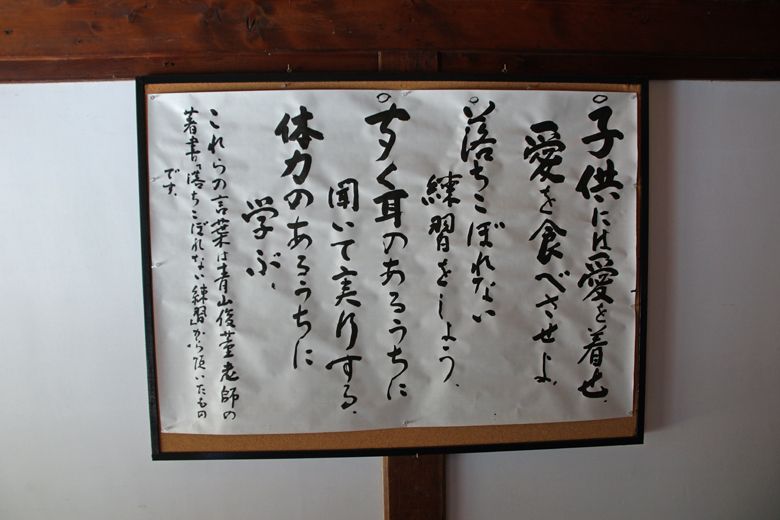 ○子供には愛を着せ、
愛を食べさせよ、
○落ちこぼれない
練習をしよう、
○聞く耳のあるうちに
聞いて実行する、
体力のあるうちに
学ぶ、
これらの言葉は青山俊董老師の
著書"落ちこぼれない練習"から頂いたもの
です。